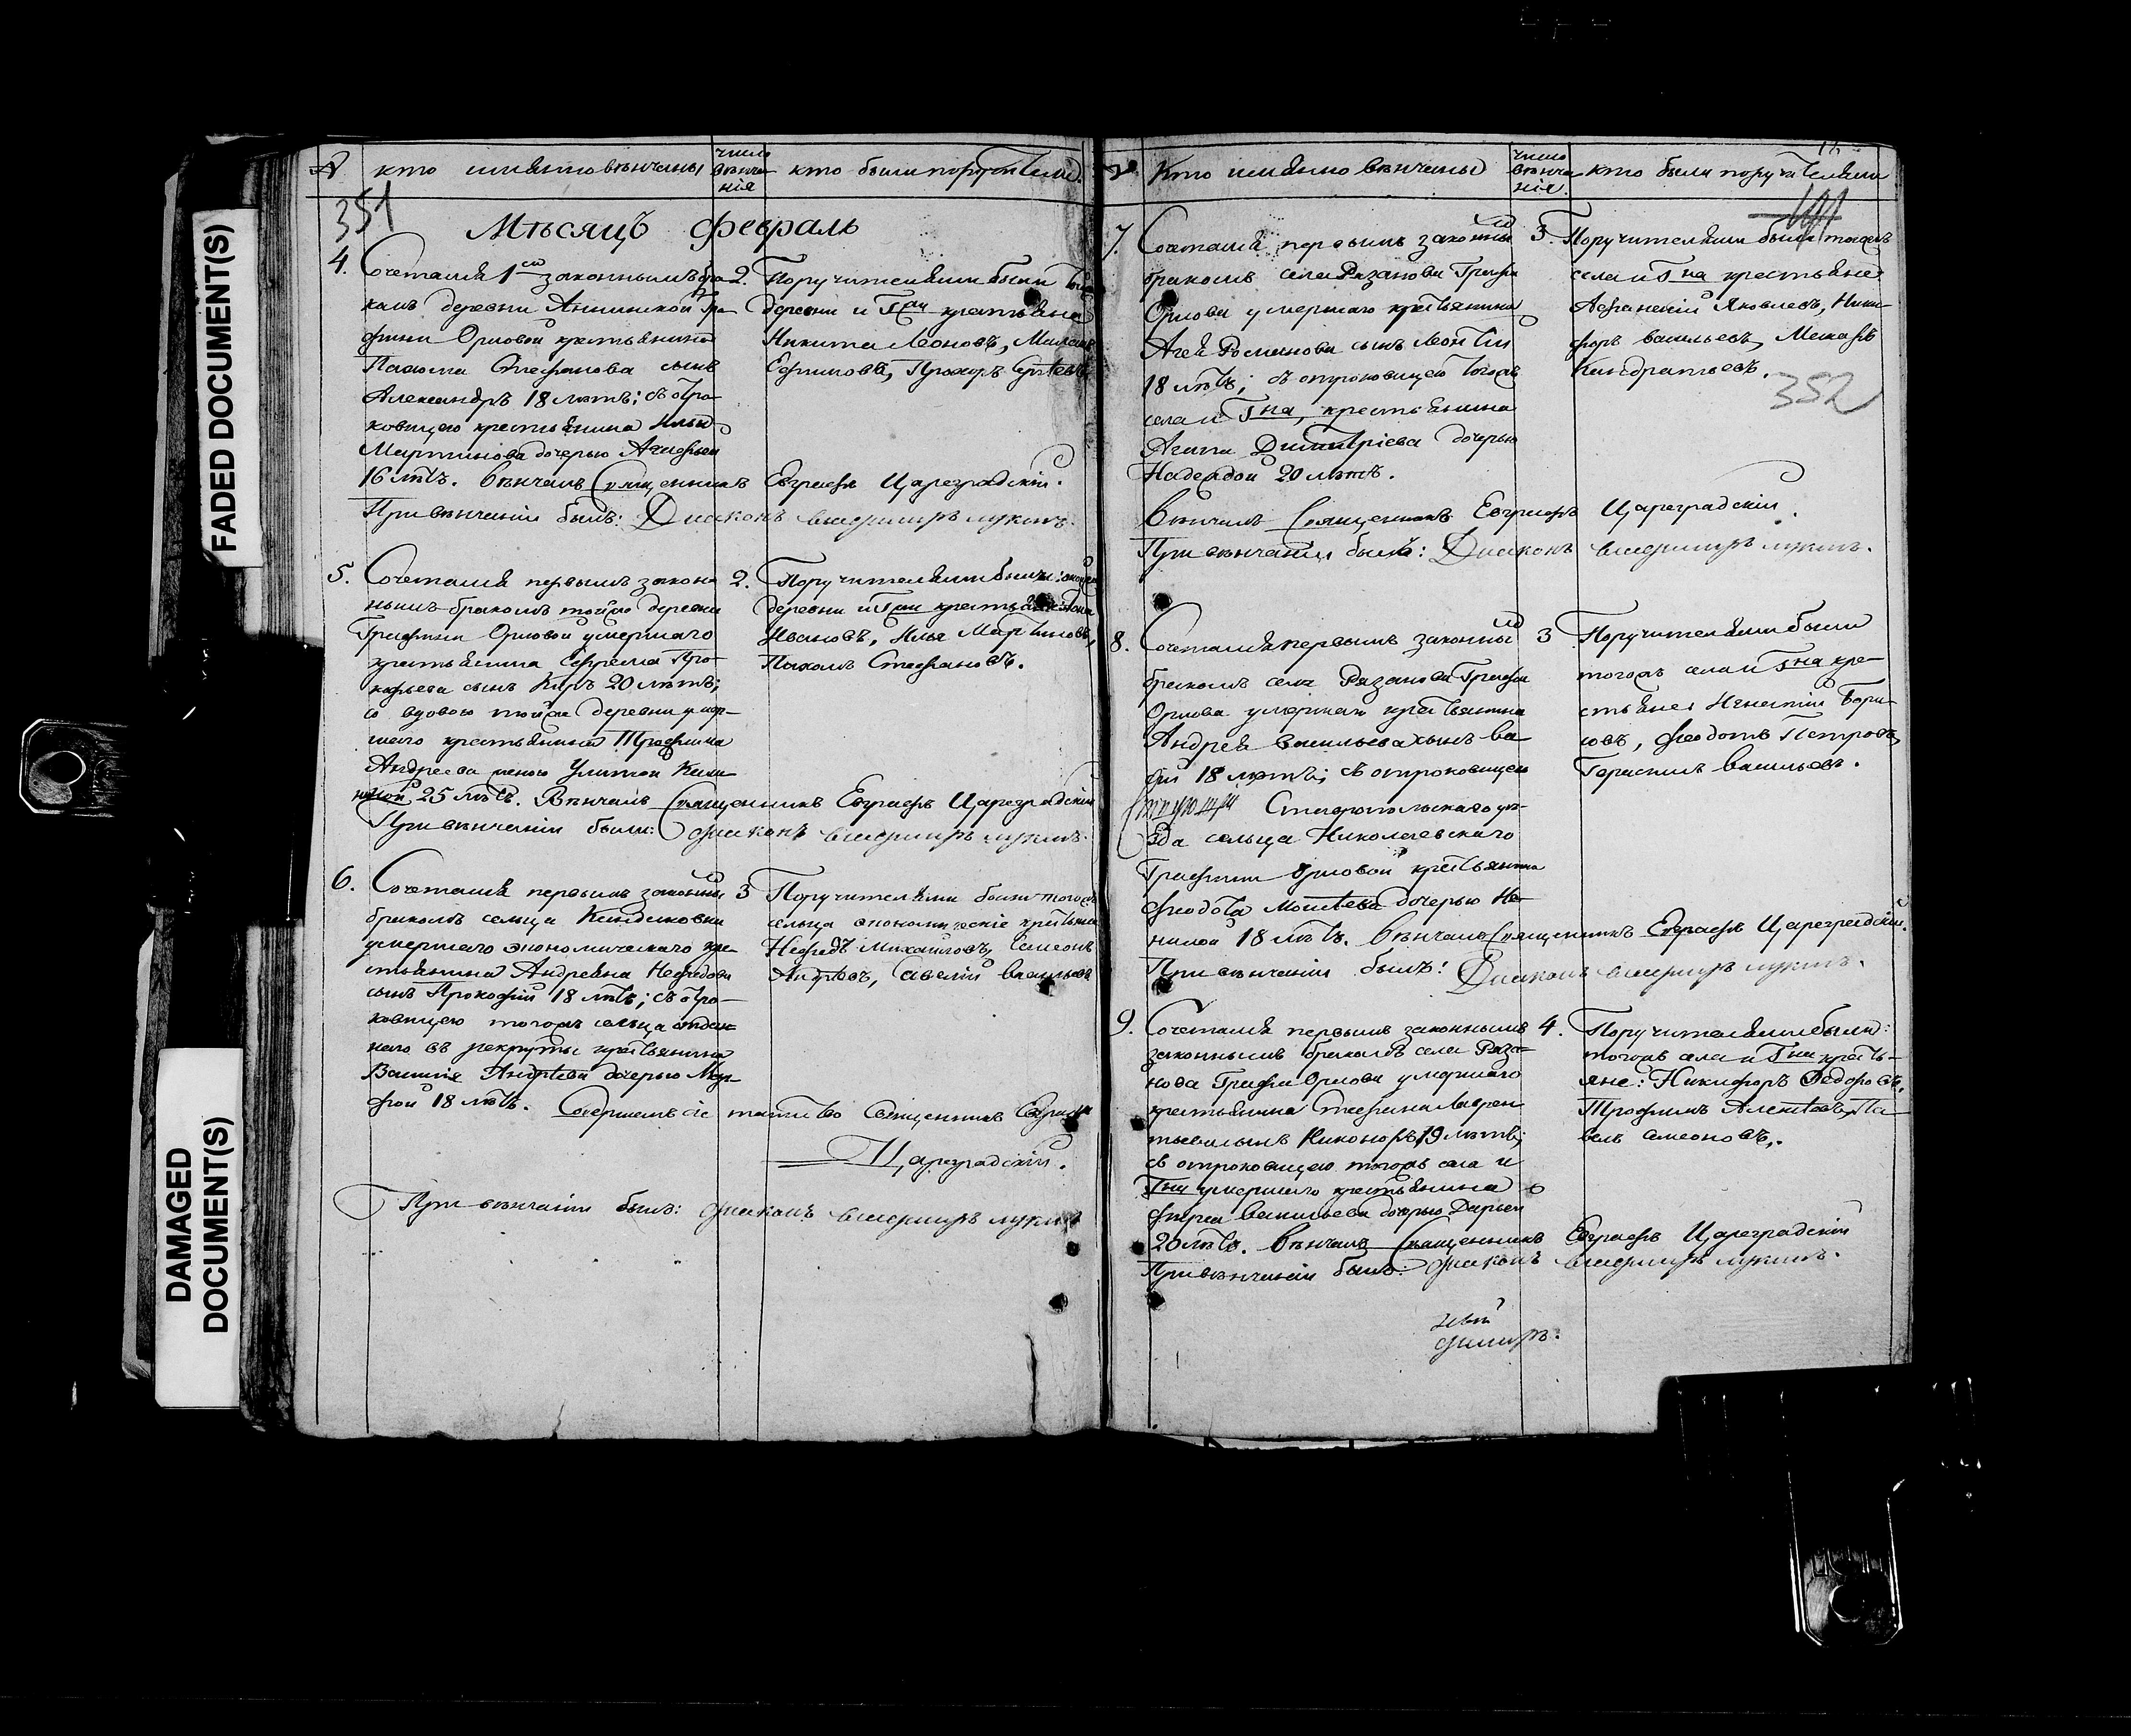 FADED DOCUMENT(S)
DAMAGED
DOCUMENT(S)
кто имянно вѣнчаны
число
вѣнча-
нія
кто были поручителями.
351
Мѣсяцъ Февраль
4.
Сочетался 1мъ законнымъ бра-
комъ деревни Аннинской Гра-
фини Орловой крестьянина
Пахома Стефанова сынъ
Александръ 18 лѣтъ; съ отро-
ковицею крестьянина Ильи
Мартинова дочерью Агафьей
16 лѣтъ. Вѣнчалъ Священникъ Евграфъ Цареградскій.
При вѣнчаніи былъ: Діаконъ
2.
Поручителями были
деревни и крестьяне
Никита Леоновъ,
Ефимовъ, Прохоръ Сергѣевъ
5.
Сочетался первымъ закон
нымъ бракомъ тойже деревни
Графини Орловой умершаго
крестьянина Ефрема Про-
кофьева сынъ Киръ 20 лѣтъ;
со вдовою тойже деревни умер-
шаго крестьянина Трофима
Андреева женою Улитой
25 лѣтъ. Вѣнчалъ Священникъ Евграфъ Цареградскій
При вѣнчаніи были: діаконъ
2.
Поручителями были:
деревни и крестьяне
Ивановъ, Илья Мартиновъ,
Пахомъ Стефановъ.
6.
Сочетался первымъ законны
бракомъ сельца Кандаковки
умершаго экономическаго кре-
стьянина Андреяна Нефедова
сынъ Прокофій 18 лѣтъ; съ отро-
ковицею тогожъ сельца отдан-
наго въ рекруты крестьянина
Василія Андрѣева дочерью Мар-
фой 18 лѣтъ. Совершилъ сіе таинство Священникъ Евграфъ
Цареградскій.
При вѣнчаніи былъ: діаконъ
3
Поручителями были тогожъ
сельца экономическіе крестьяне
Нефедъ Михайловъ, Семенъ
Андрѣевъ, Савелій Васильевъ
Кто имянно вѣнчаны
число
вѣнча-
нія.
кто были поручителями
7.
Сочетался первымъ законны
бракомъ села Рязанова Графа
Орлова умершаго крестьянина
Агея Романова сынъ Леонтій
18 лѣтъ; съ отроковицею тогожъ
села и Гна, крестьянина
Агапа Димитріева дочерью
Надеждой 20 лѣтъ.
Вѣнчалъ Священникъ Евграфъ Цареградскій.
При вѣнчаніи былъ: Діаконъ
3.
Поручителями были тогожъ
села и Гна крестьяне
Афанасій Яковлевъ, Ники-
форъ Васильевъ,
Кандратьевъ.
352
8.
Сочетался первымъ законны
бракомъ села Рязанова Графа
Орлова умершаго крестьянина
Андрея Васильева сынъ Ва-
18 лѣтъ; съ отроковицею
Ставропольскаго уѣ-
зда сельца Николаевскаго
Графини Орловой крестьянина
Феодота Моисеева дочерью Не-
нилой 18 лѣтъ. Вѣнчалъ Священникъ Евграфъ Цареградскій.
При вѣнчаніи былъ: Діаконъ
3
Поручителями были
тогожъ села и Гна кре-
стьяне Игнатій Бори-
совъ, Феодотъ Петровъ,
Герасимъ Васильевъ.
9.
Сочетался первымъ законнымъ
законнымъ бракомъ села Ряза-
нова Графа Орлова умершаго
крестьянина Стефана Лаврен-
тьева сынъ Никоноръ, 19 лѣтъ;
съ отроковицею тогожъ села и
Гна умершаго крестьянина
Васильева дочерью Дарьей
20 лѣтъ. Вѣнчалъ Священникъ Евграфъ Цареградскій
При вѣнчаніи былъ: діаконъ
4.
Поручителями были:
тогожъ села и Гна кресть-
яне: Никифоръ Федоровъ,
Трофимъ Алексѣевъ, Па-
велъ Семеновъ.